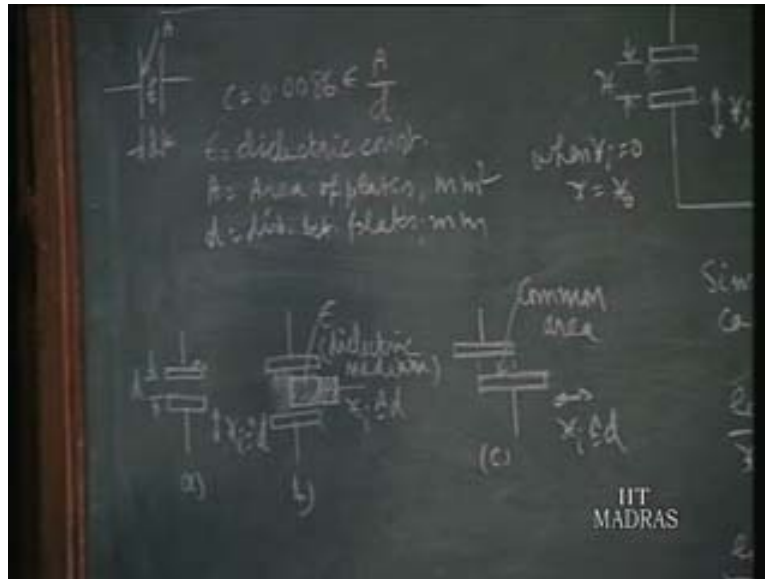 A
C = 0.0086 ϵ A/d
ϵ
d
ϵ = dielectric const.
A = Area of plates, mm²
d = dist. bet plates, mm
x
xi
when xi = 0
x = x0
Sim
ca
ϵ
(dielectric
medium)
Common
area
d
xi ≙ d
xi ≙ d
xi ≙ d
a)
b)
(c)
IIT
MADRAS